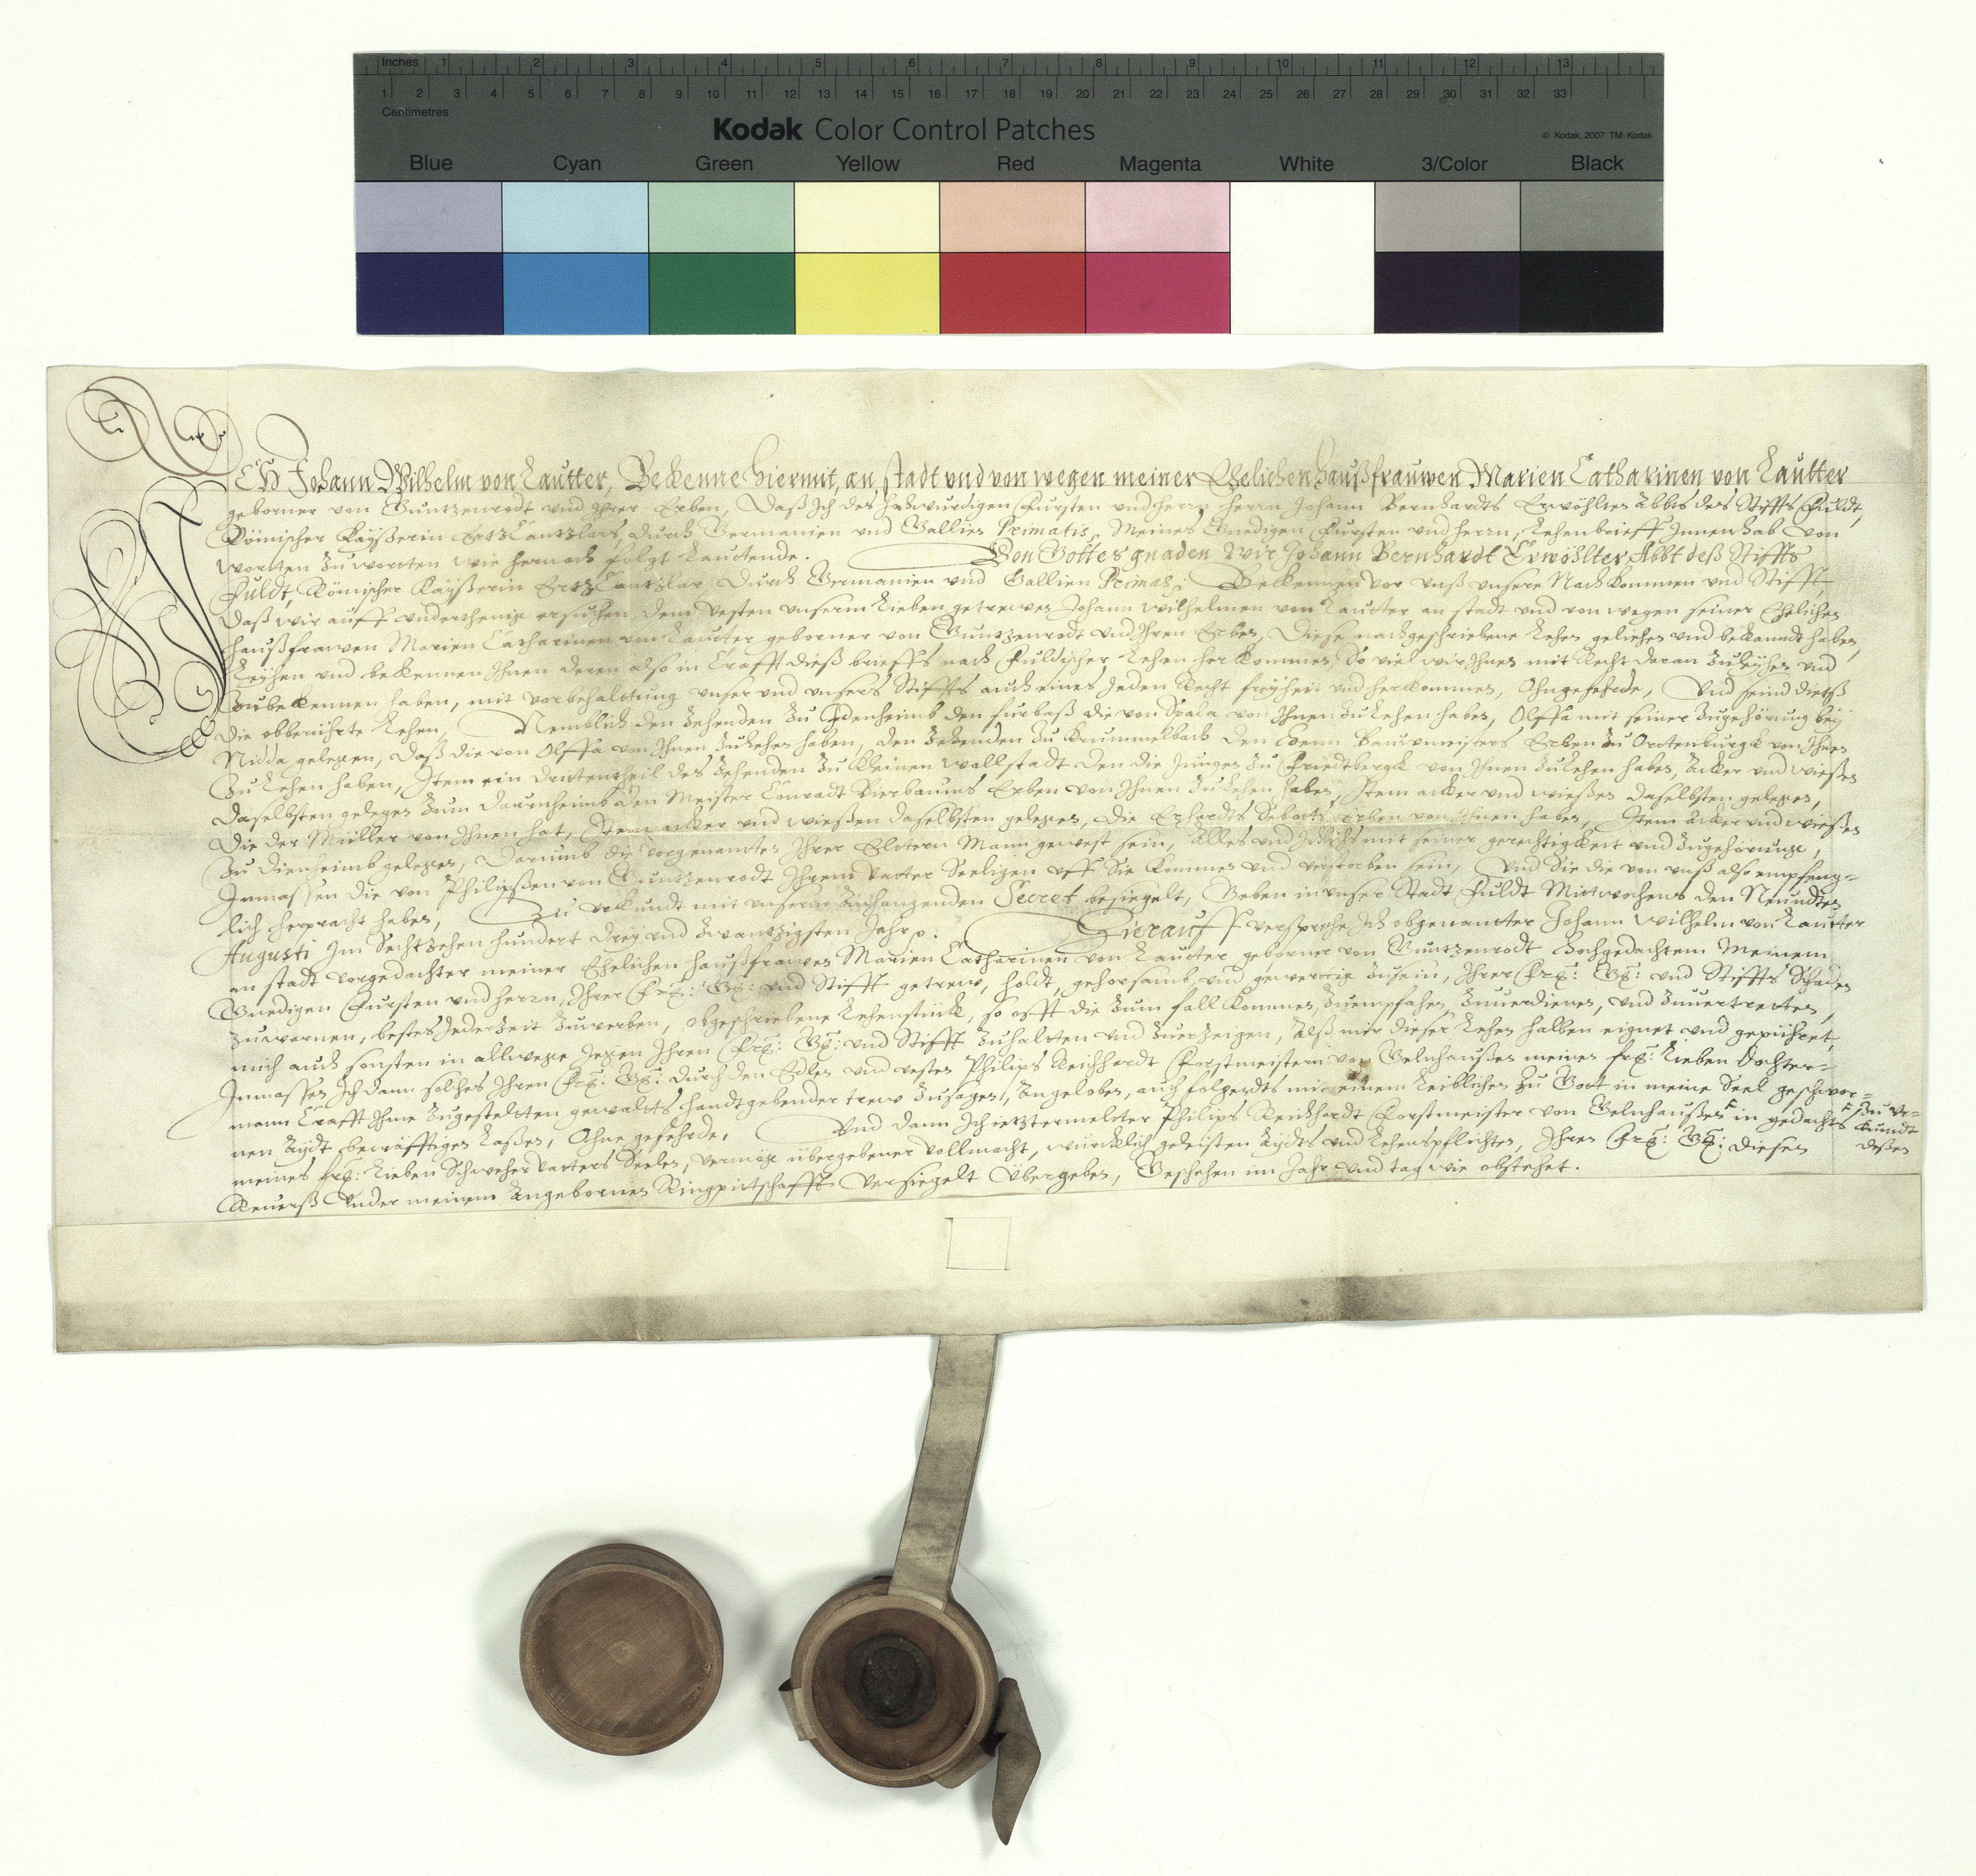 Inches 1 2 3 4 5 6 7 8 9 10 11 12 13
1 2 3 4 5 6 7 8 9 10 11 12 13 14 15 16 17 18 19 20 21 22 23 24 25 26 27 28 29 30 31 32 33
Centimetres
Kodak Color Control Patches
© Kodak, 2007 TM: Kodak
Blue Cyan Green Yellow Red Magenta White 3/Color Black
ICH Johann Wilhelm von Lautter, Bekenne hiermit, an stadt vnd von wegen meiner Ehelichen haußfrauwen Marien Catharinen von Lautter
geborner von Guntzenrodt vnd Ihrer Erben, Daß Ich des hochwurdigen Fursten vnd herrn herrn Johann Bernhardts Erwöhlten Abbts des Stiffts Fuldt,
Römischer Kayßerin ErtzCantzlars, durch Germanien vnd Gallien Primatis, Meines Gnedigen Fursten vnd herrn, Lehenbrieff Innenhab von
worten zu worten wie hernach folgt Lauttende. Von Gottes gnaden Wir Johann Bernhardt Erwöhlter Abbt deß Stiffts
Fuldt, Römischer Kayßerin ErtzCantzlar, durch Germanien vnd Gallien Primas; Bekennen vor vnß vnsere Nachkommen vnd Stifft,
Daß wir auff vnderthenig ersuchen, dem Vesten vnserm Lieben getrewen Johann Wilhelmen von Lautter an stadt vnd von wegen seiner Ehelichen
haußfrawen Marien Catharinen von Lautter geborner von Guntzenrodt vnd Ihren Erben, Diese nachgeschriebene Lehen geliehen vnd bekandt haben,
Leyhen vnd bekennen Ihnen deren also in Crafft dieß brieffs nach Fuldischer Lehen herkommen, So viel wir Ihnen mit Recht daran Zuleyhen vnd
Zubekennen haben, mit vorbehaltung vnser vnd vnsers Stiffts auch eines Jeden Recht freyheit vnd herkommen, Ohngefehrde, Vnd seind dietß
die obberührte Lehen, Nemblich den Zehenden Zu Edenheimb den furbaß die von Spala von Ihnen Zu Lehen haben, Olffa mit seiner Zugehörung bey
Nidda gelegen, Daß die von Olffa von Ihnen Zu Lehen haben, den Zehenden Zu Krummelbach den Baumeisters Erben Zu Orttenburgk von Ihnen
Zu Lehen haben, Item ein drittentheil des Zehenden Zu Kleinen Wallstadt den die Jungen Zu Friedtbergk von Ihnen Zu Lehen haben, Äcker vnd wießen
daselbsten gelegen Zum Daurnheimb den Meister Conradt Bierbaums Erben von Ihnen Zu Lehen haben, Item äcker vnd wießen daselbsten gelegen,
Die der Müller von Ihnen hat, Item äcker vnd wießen daselbsten gelegen, die Erhardts Erben von Ihnen haben, Item äcker vnd wießen
Zu Dienheimb gelegen, Darumb die vorgenanten Ihrer Eltern Mann gewest sein, Alles vnd Jedes mit seiner gerechtigkeit vnd Zugehörunge,
Inmassen die von Philipßen von Guntzenrodt Ihrem Vatter Seeligen vff Sie Kommen vnd verstorben sein, Vnd Sie die von vnß also empfeng=
lich herpracht haben, Zu vrkundt mit vnserm Anhangenden Secret besiegelt, Geben in vnser Stadt Fuldt Mittwochens den Neundten
Augusti Im Sechtzehen hundert drey vnd Zwantzigsten Jahr. Hierauff versprech Ich obgenantter Johann Wilhelm von Lautter
an stadt vorgedachter meiner Ehelichen haußfrawen Marien Catharinen von Lautter geborner von Guntzenrodt Hochgedachtem Meinem
Gnedigen Fursten vnd herrn, Ihrer vnd Stifft getrew, holdt, gehorsamb vnd gewerttig Zusein, Ihrer vnd Stiffts Schaden
Zuwarnen, bestes Jederzeit Zuwerben, obgeschriebene Lehenstück, so offt die Zum fall kommen, Zuempfahen, Zuuerdienen, vnd Zuuertretten,
mich auch sonsten in allwege gegen Ihren vnd Stifft Zuhalten vnd Zuerzeigen, Alß mir dieser Lehen halben eignet vnd gepühret,
Inmassen Ich dann solches Ihren durch den Edlen vnd vesten Philips Reichhardt Forstmeistern von Gelnhaußen meinen Lieben Dochter=
mann Crafft Ihme Zugestelten gewalts handtgebender trew Zusagen, Angeloben, auch folgendts mit einem Leiblichen Zu Gott in meine Seel geschwor=
nen Aydt becräfftigen Laßen, Ohne gefehrde, Vnd dann Ich ietztermelter Philips Reichhardt Forstmeister von Gelnhaußen in gedachts
meines Lieben Schweher Vatters Seelen, vermög übergebener Vollmacht, würcklich geleisten Aydts vnd Lehenspflichten, Ihren diesen
Zu vr=
kundt
deßen
Reuerß Vnder meinem Angebornen Ringpittschafft Versiegelt Übergeben, Geschehen im Jahr vnd tag wie obstehet.